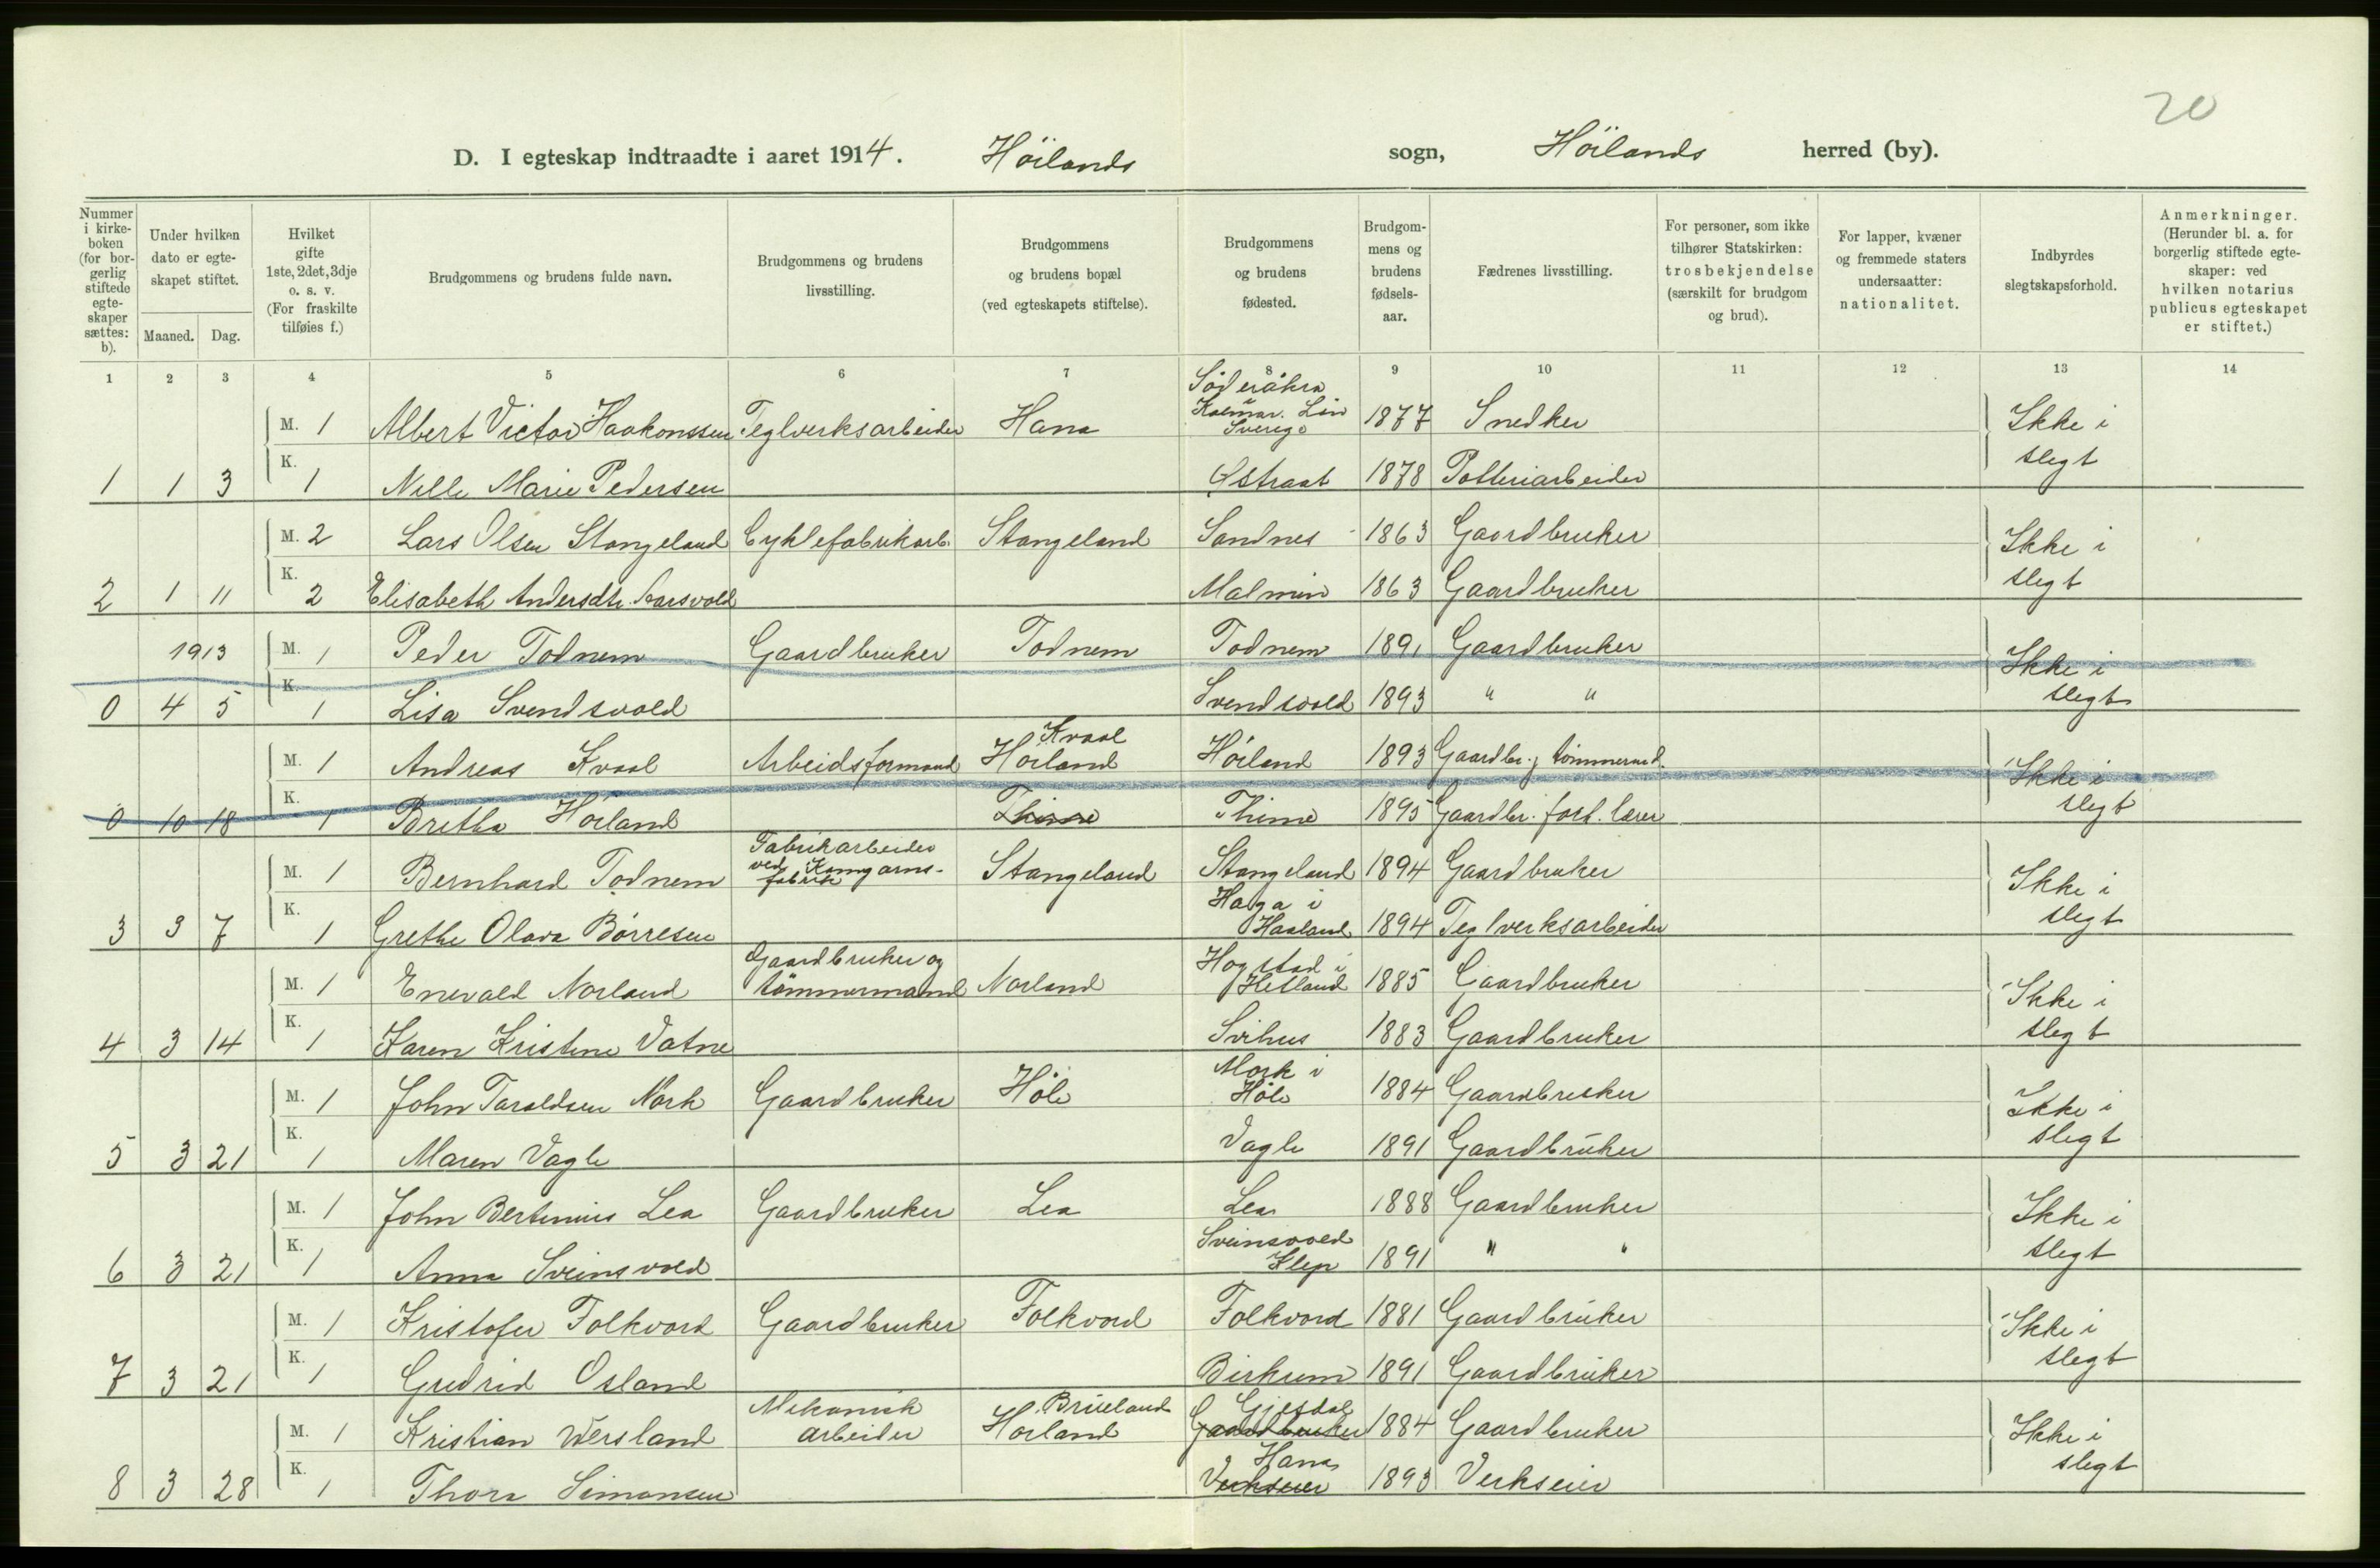 20
D. I egteskap indtraadte i aaret 1914. Höilands sogn, Höilands herred (by).
Nummer i kirke-boken (for bor-gerlig stiftede egte-skaper sættes: b).
Under hvilken dato er egte-skapet stiftet.
Maaned. Dag.
Hvilket gifte 1ste, 2det, 3dje o. s. v. (For fraskilte tilføies f.)
Brudgommens og brudens fulde navn.
Brudgommens og brudens livsstilling.
Brudgommens og brudens bopæl (ved egteskapets stiftelse).
Brudgommens og brudens fødested.
Brudgom-mens og brudens fødsels-aar.
Fædrenes livsstilling.
For personer, som ikke tilhører Statskirken: trosbekjendelse (særskilt for brudgom og brud).
For lapper, kvæner og fremmede staters undersaatter: nationalitet.
Indbyrdes slegtskapsforhold.
Anmerkninger. (Herunder bl. a. for borgerlig stiftede egte-skaper: ved hvilken notarius publicus egteskapet er stiftet.)
1 2 3 4 5 6 7 8 9 10 11 12 13 14
M. 1 Albert Victor Haakonssen Teglverksarbeider Hana Söderåkra Kalmar Län Sverige 1877 Snedker Ikke i slegt
1 1 3 K. 1 Nelle Marie Pedersen Østraat 1878 Potteriarbeider
M. 2 Lars Olsen Stangeland Cyklefabrikarb. Stangeland Sandnes 1863 Gaardbruker Ikke i slegt
2 1 11 K. 2 Elisabeth Andersdtr. Aarsvold Malmin 1863 Gaardbruker
1913 M. 1 Peder Todnem Gaardbruker Todnem Todnem 1891 Gaardbruker Ikke i slegt
0 4 5 K. 1 Lisa Svendsvold Svendsvold 1893 " "
M. 1 Andreas Kvaal Arbeidsformand Kvaal Höiland Höiland 1893 Gaardbr. & tömmermd. Ikke i slegt
0 10 18 K. 1 Bretha Höiland Thime Thime 1895 Gaardbr. forh. lærer
M. 1 Bernhard Todnem Fabrikarbeider ved Kamgarns-fabrik Stangeland Stangeland 1894 Gaardbruker Ikke i slegt
3 3 7 K. 1 Grethe Olava Börresen Haga i Haaland 1894 Teglverksarbeider
M. 1 Enevald Norland Gaardbruker og tömmermand Norland Hogstad i Hetland 1885 Gaardbruker Ikke i slegt
4 3 14 K. 1 Karen Kristine Vatne Svihus 1883 Gaardbruker
M. 1 John Taraldsen Mork Gaardbruker Höle Mork i Höle 1884 Gaardbruker Ikke i slegt
5 3 21 K. 1 Maren Vagle Vagle 1891 Gaardbruker
M. 1 John Bertinius Lea Gaardbruker Lea Lea 1888 Gaardbruker Ikke i slegt
6 3 21 K. 1 Anna Sveinsvold Sveinsvold Klep 1891 " "
M. 1 Kristofer Folkvord Gaardbruker Folkvord Folkvord 1881 Gaardbruker Ikke i slegt
7 3 21 K. 1 Gudrid Osland Birkrem 1891 Gaardbruker
M. 1 Kristian Wersland Mekanisk arbeider Brueland Höiland Gjesdal Gaardbruker 1884 Gaardbruker Ikke i slegt
8 3 28 K. 1 Thora Simonsen Hana Verkseier 1893 Verkseier